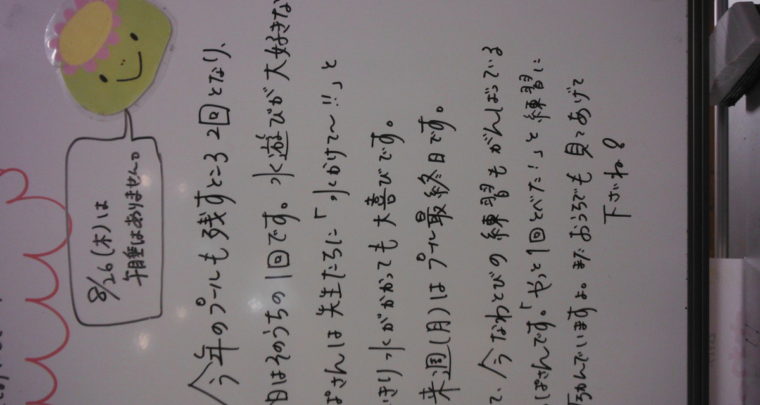 8/26(木)は
午睡はありません。
今年のプールも残すところ2回となり、
日はそのうちの1回です。水遊びが大好きな
ぱさんは先生たちに「水かけて〜!!」と
きり水がかかっても大喜びです。
来週(月)はプール最終日です。
て、今なわとびの練習もがんばっている
っぱさんです。「やっと1回とべた!」と練習に
励んでいますよ。またおうちでも見てあげて
下さいね。